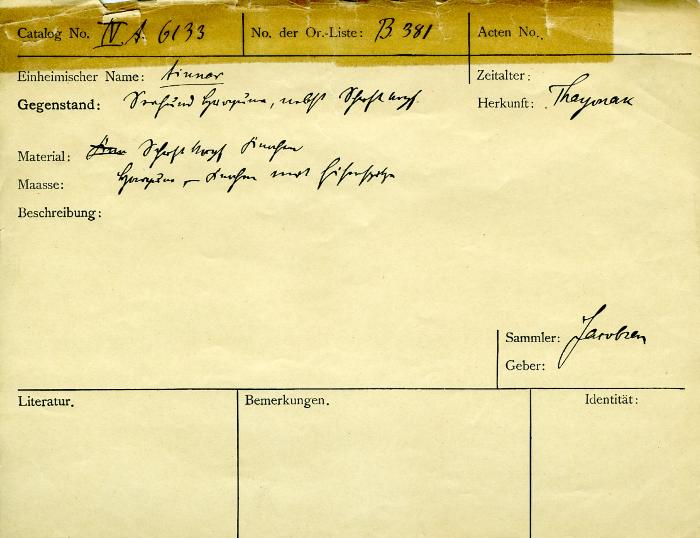 Catalog No. IV A 6133 No. der Or.-Liste: B 381 Acten No.
Einheimischer Name: tinnar Zeitalter:
Gegenstand: Seehund Harpune, nebst Schaftkopf Herkunft: Thayonak
Material: Schaftkopf Knochen
Maasse: Harpune – Knochen mit Eisenspitze
Beschreibung:
Sammler: Jacobsen
Geber:
Literatur. Bemerkungen. Identität: